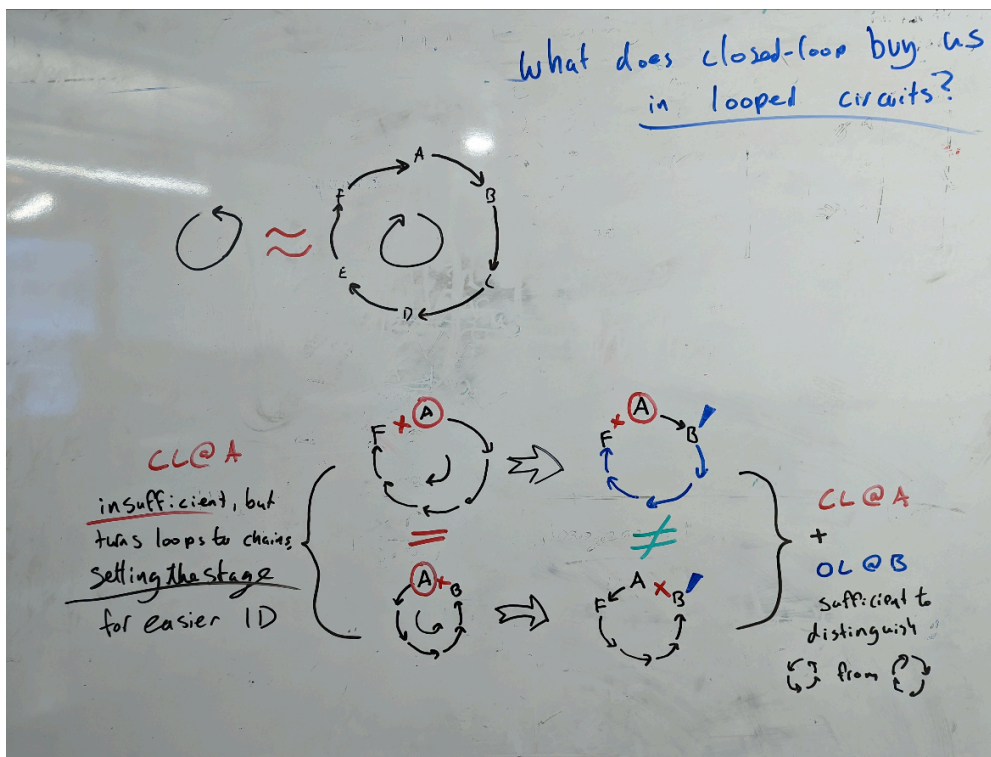 What does closed-loop buy us
in looped circuits?
A
F
B
≈
E
C
D
CL@A
insufficient, but
turns loops to chains,
setting the stage
for easier ID
F x A
=
A x B
F x A B
≠
A
F x B
CL@A
+
OL@B
sufficient to
distinguish
from